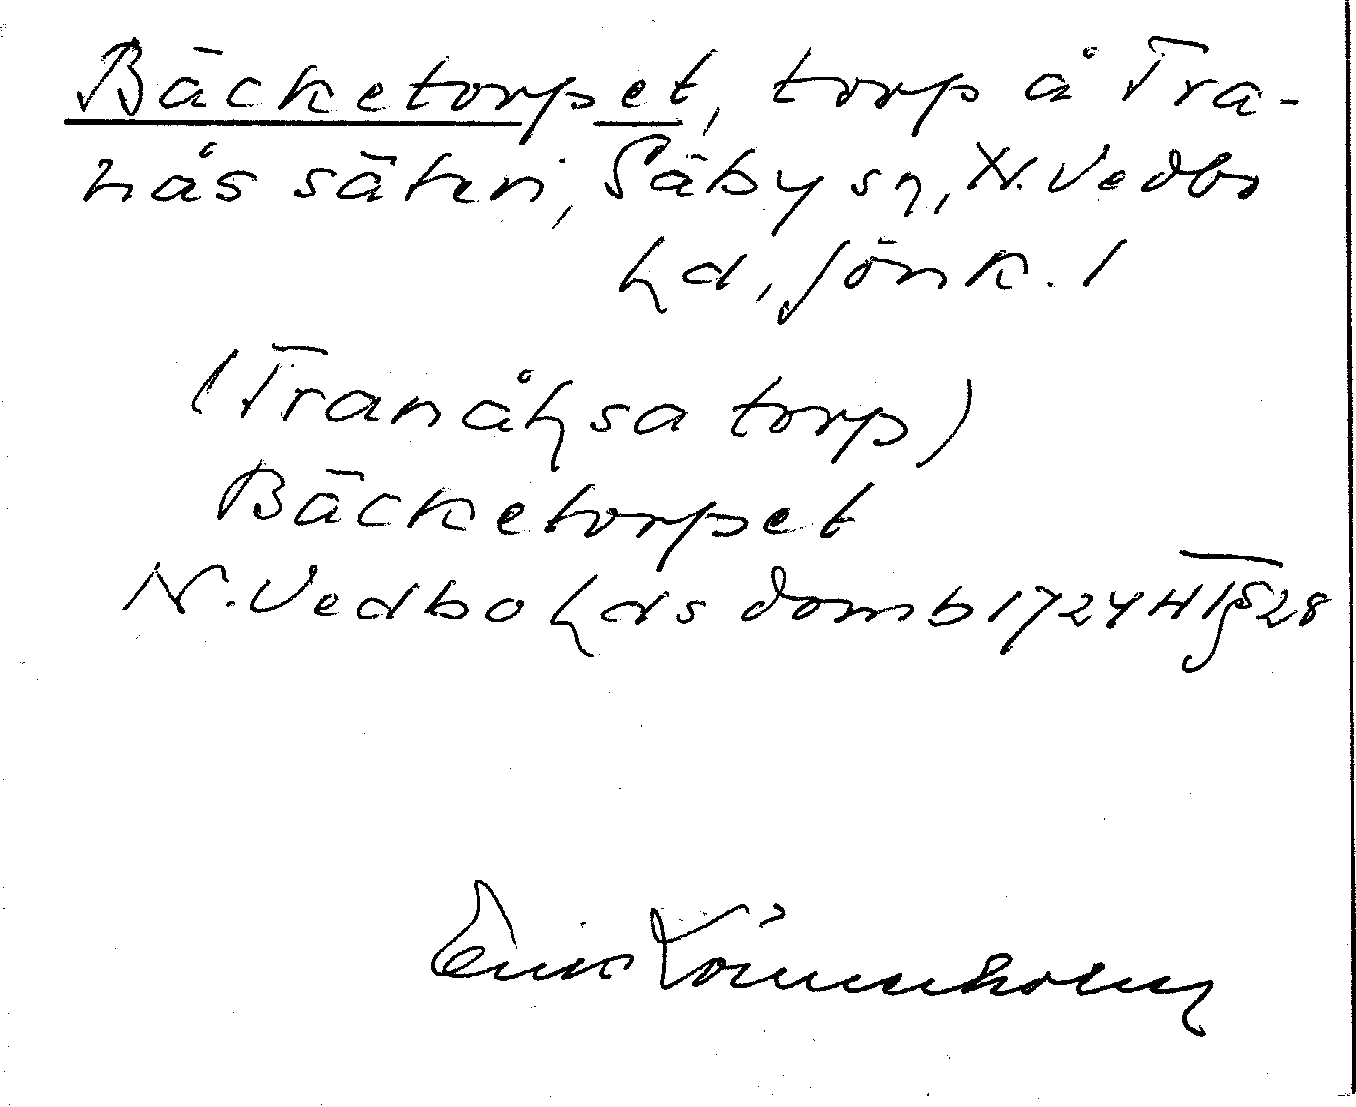 Bäcketorpet, torp å Tra-
nås säteri, Säby sn, N. Vedbo
hd, Jönk. l
(Tranåhsa torp)
Bäcketorpet
N. Vedbo hds domb 1724 HT § 28
Erik